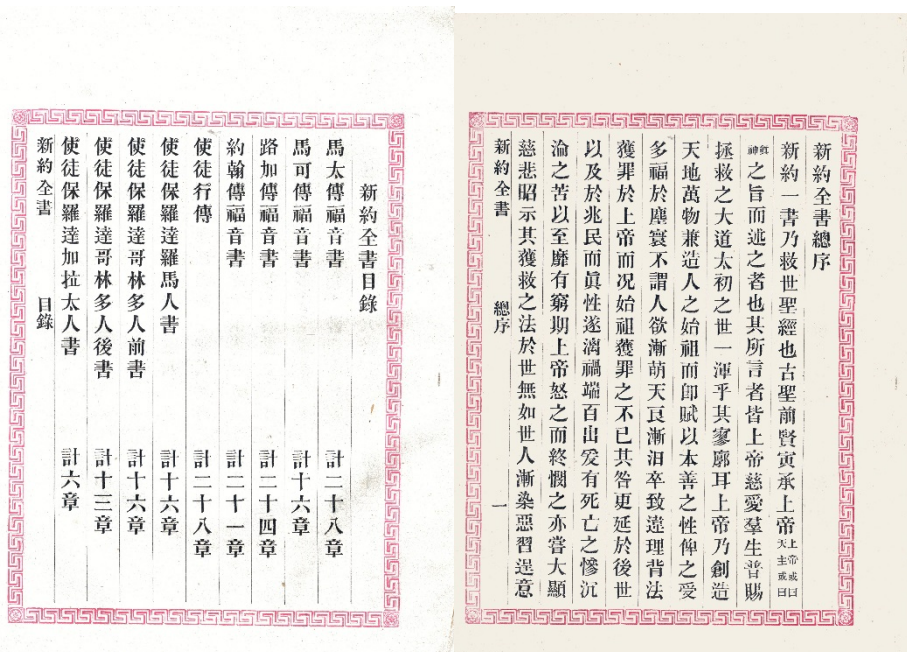 新約全書總序
新約一書乃救世聖經也古聖前賢寅承上帝上帝或曰天主或曰
眞神之旨而述之者也其所言者皆上帝慈愛羣生普賜
拯救之大道太初之世一渾乎其寥廓耳上帝乃創造
天地萬物兼造人之始祖而卽賦以本善之性俾之受
多福於塵寰不謂人欲漸萌天良漸汨卒致違理背法
獲罪於上帝而况始祖獲罪之不已其咎更延於後世
以及於兆民而眞性遂漓禍端百出爰有死亡之慘沉
淪之苦以至靡有窮期上帝怒之而終憫之亦嘗大顯
慈悲昭示其獲救之法於世無如世人漸染惡習逞意
新約全書 總序 一
新約全書目錄
馬太傳福音書 計二十八章
馬可傳福音書 計十六章
路加傳福音書 計二十四章
約翰傳福音書 計二十一章
使徒行傳 計二十八章
使徒保羅達羅馬人書 計十六章
使徒保羅達哥林多人前書 計十六章
使徒保羅達哥林多人後書 計十三章
使徒保羅達加拉太人書 計六章
新約全書 目錄